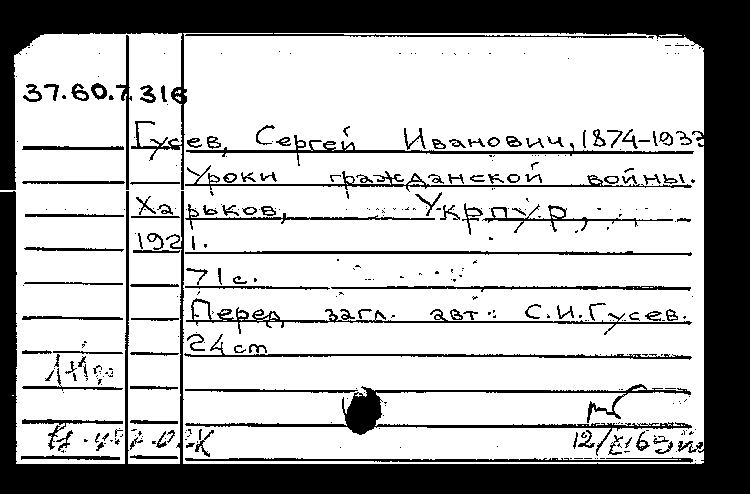 37.60.7.316
Гусев, Сергей Иванович, 1874-1933
Уроки гражданской войны.
Харьков, Укрпур,
1921.
71 с.
Перед загл. авт.: С.И.Гусев.
24 cm